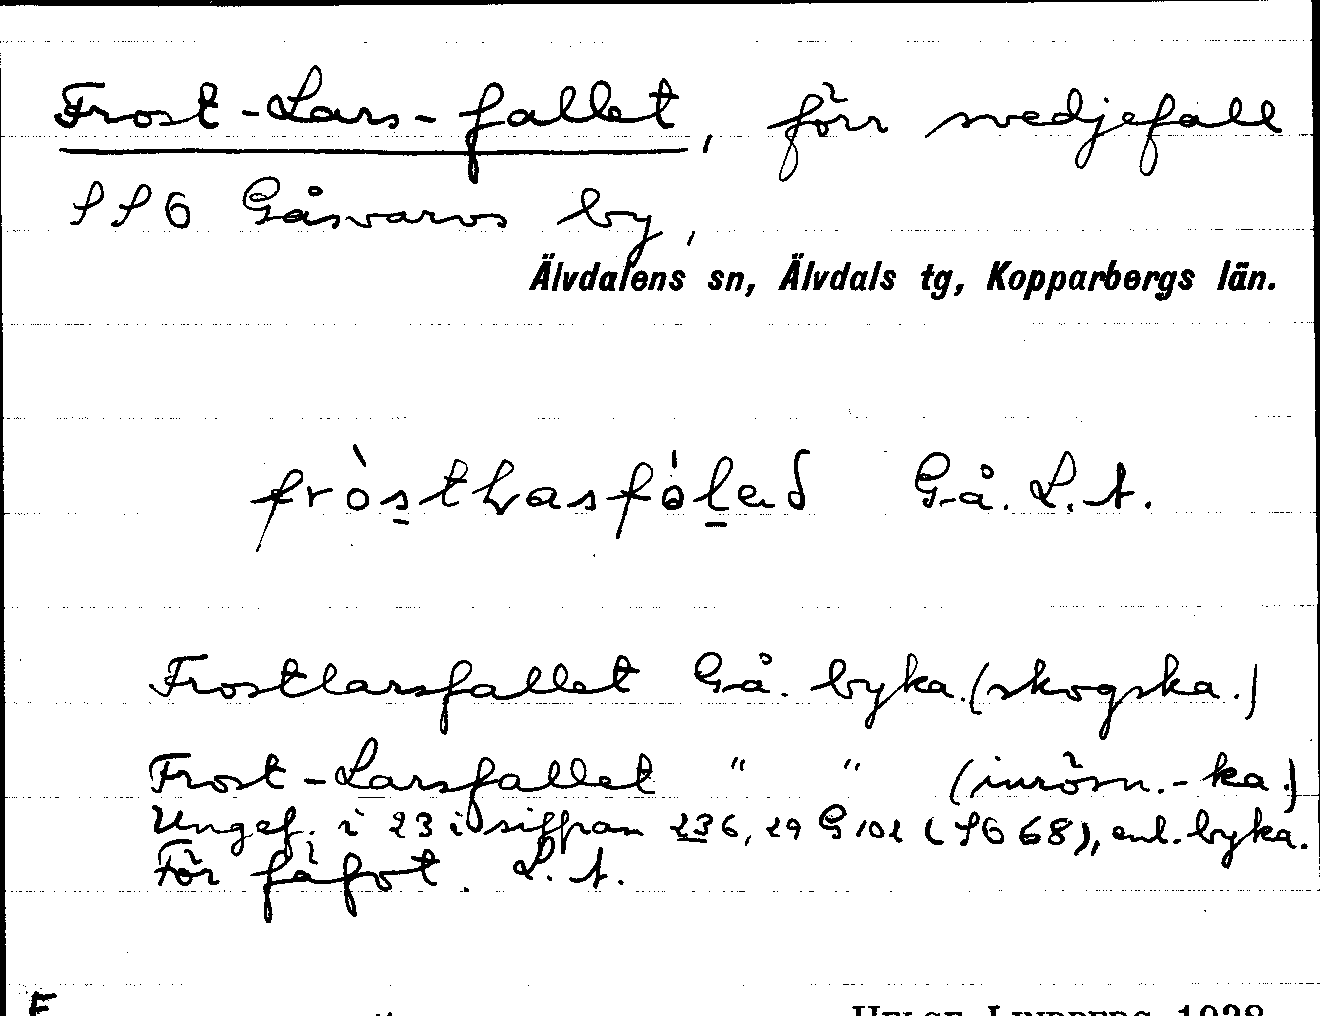 Frost-Lars-fallet, förr svedjefall
SSÖ Gåsvarvs by,
Älvdalens sn, Älvdals tg, Kopparbergs län.
Gå. L.A.
Frostlarsfallet Gå. byka. (skogska.)
Frost-Larsfallet " " (inrösn.-ka.)
Ungef. i 23 i siffran 236, 29 G 102 (SÖ 68), enl. byka.
För fåfot. L.A.
F
HELGE LINDBERG 1928